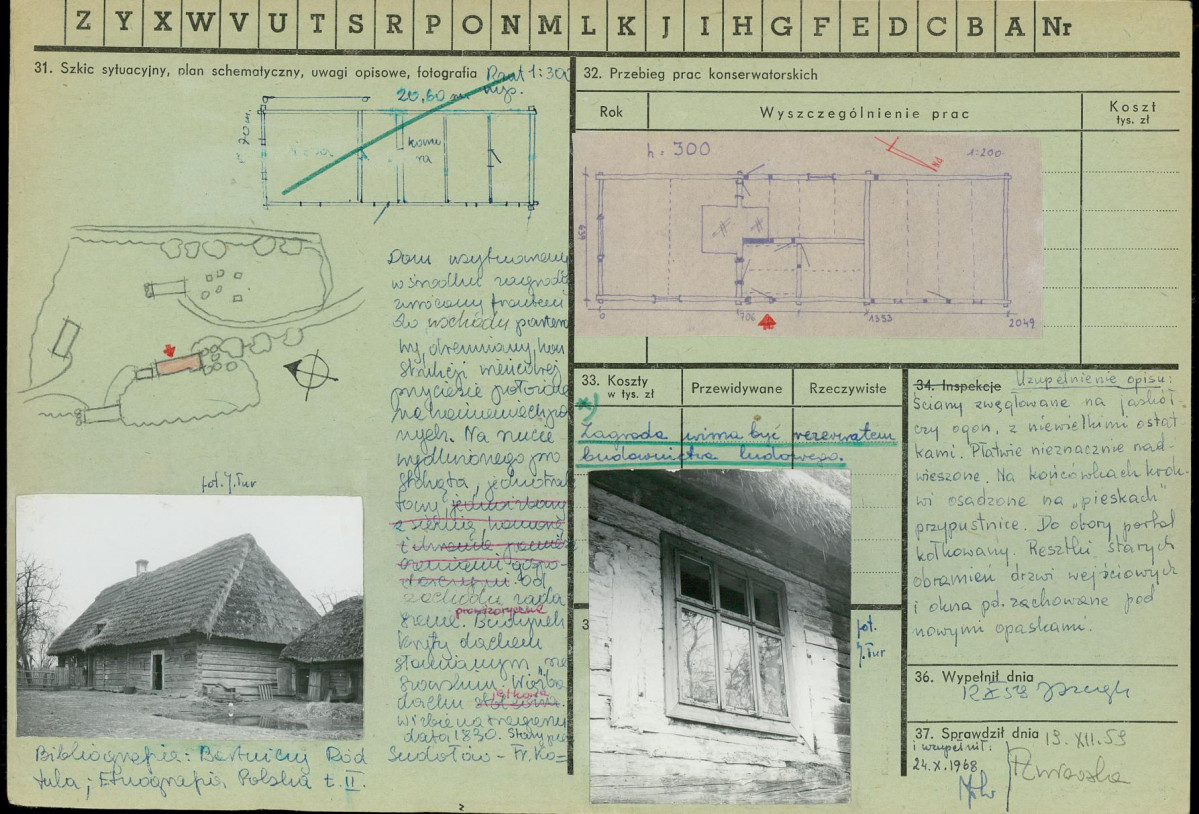 Z Y X W V U T S R P O N M L K J I H G F E D C B A Nr
31. Szkic sytuacyjny, plan schematyczny, uwagi opisowe, fotografia
Rzut 1:30
20,60 m.
komo
ra
Dom usytuowany
w środku zagrody
zwrócony frontem
do wschodu parter
wy, drewniany, kon
strukcji wieńcowej
przyciesie
na kamieniach
nych. Na rzucie
wydłużonego pro
stokąta, jednotrak
towy
z sienią
Od
zachodu
prowizoryczne
Budynek
kryty dachem
słomianym, na
Więźba
dachu
W izbie na tragarzu
data 1830.
Sudołów - Fr. Ko-
fot. J. Tur
Bibliografia: Bertnicy Ród
tula; Etnografia Polska t. II.
32. Przebieg prac konserwatorskich
Rok
Wyszczególnienie prac
Koszt
tys. zł
h = 300
1:200
459
0
706
1353
2049
33. Koszty
w tys. zł
Przewidywane
Rzeczywiste
*)
Zagroda winna być rezerwatem
budownictwa ludowego.
fot.
J. Tur
34. Inspekcje Uzupełnienie opisu:
Ściany zwęgłowane na jaskół-
czy ogon, z niewielkimi ostat
kami. Płatwie nieznacznie nad-
wieszone. Na końcówkach krok-
wi osadzone na „pieskach"
przypustnice. Do obory portal
kołkowany. Resztki starych
obramień drzwi wejściowych
i okna pd. zachowane pod
nowymi opaskami.
36. Wypełnił dnia
12 X 58
37. Sprawdził dnia 19. XII. 59
i uzupełnił:
24.X.1968